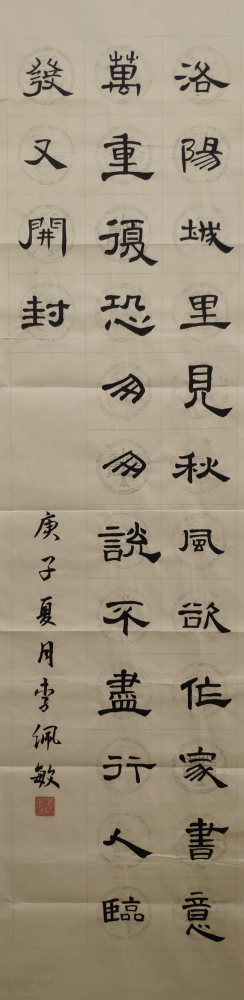 洛陽城里見秋風欲作家書意
萬重復恐匆匆說不盡行人臨
發又開封
庚子夏月李佩敏